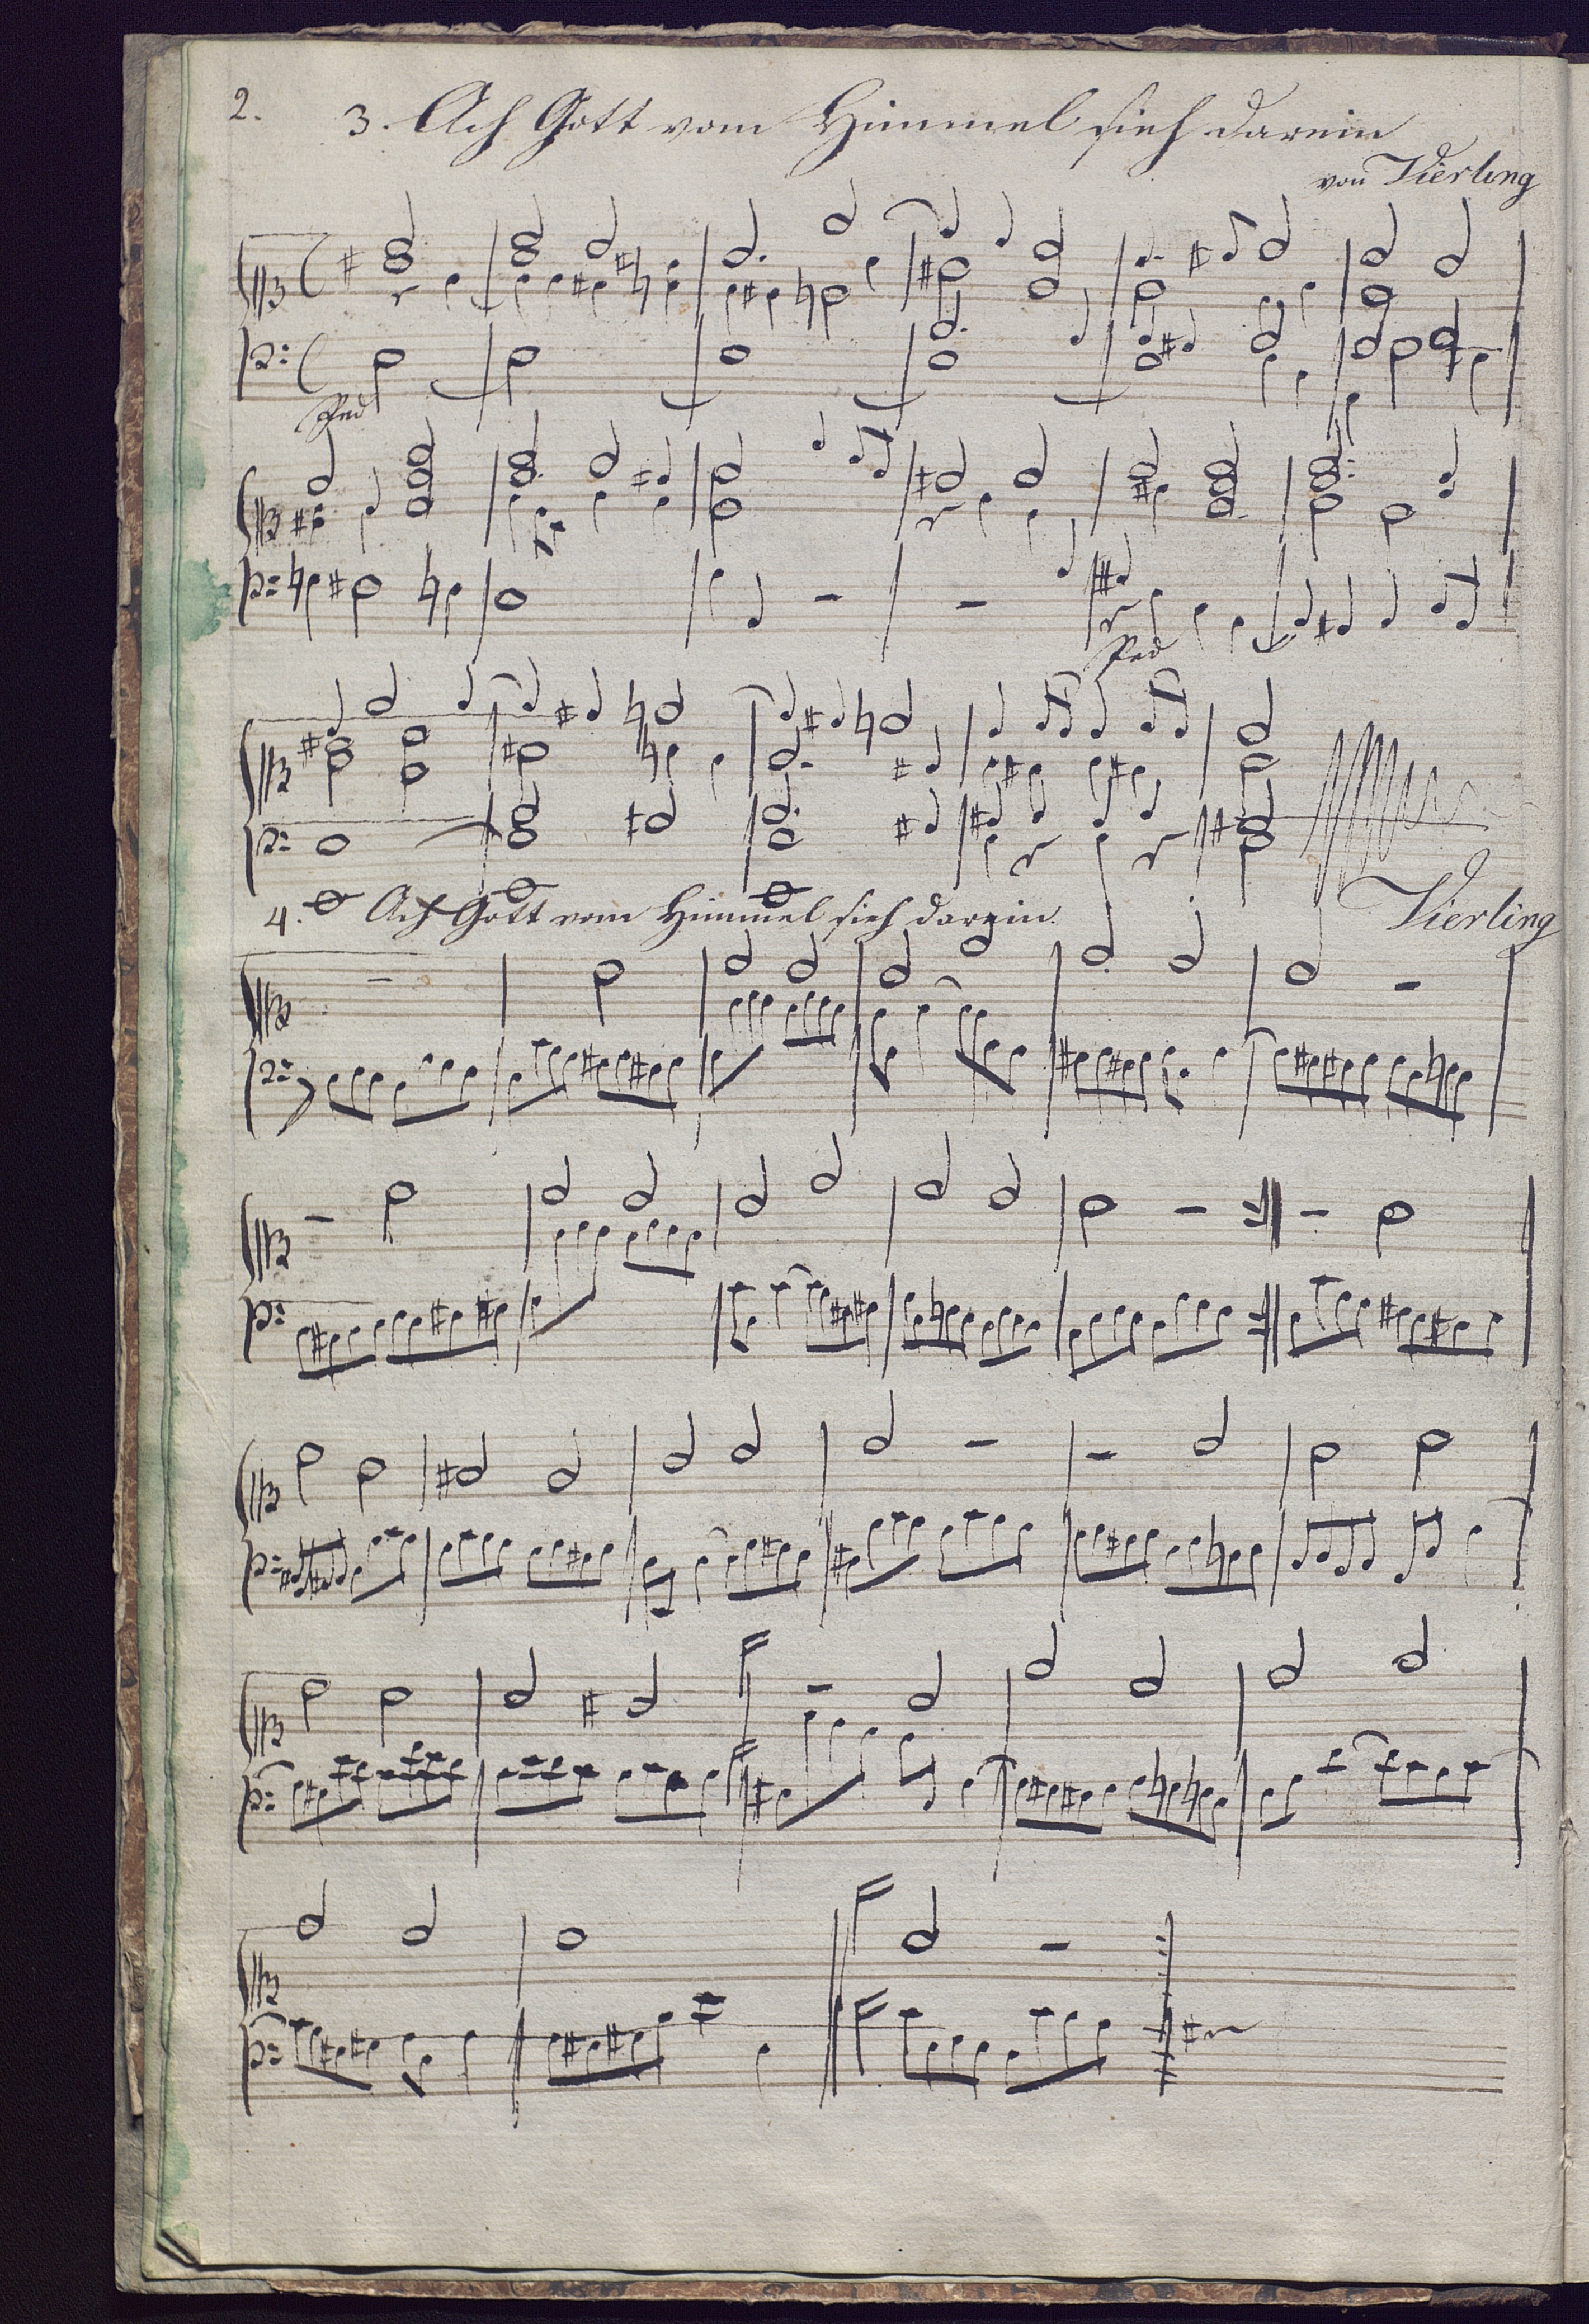 2. 3. Ach Gott vom Himmel sieh darein
von Vierling
Ped
Ped
4. Ach Gott vom Himmel sieh darein.
Vierling